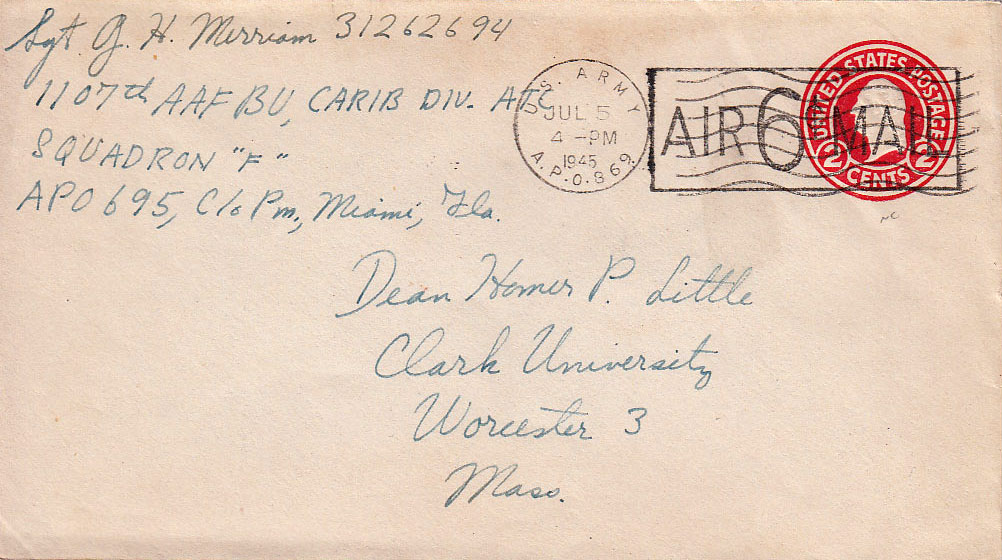 Sgt. G. H. Merriam 31262694
1107th AAF BU, CARIB DIV. ATC
SQUADRON "F"
APO 695, C/o Pm., Miami, Fla.
U.S. ARMY
JUL 5
4 -PM
1945
A.P.O. 869
AIR 6¢ MAIL
UNITED STATES POSTAGE
2 CENTS 2
Dean Homer P. Little
Clark University
Worcester 3
Mass.